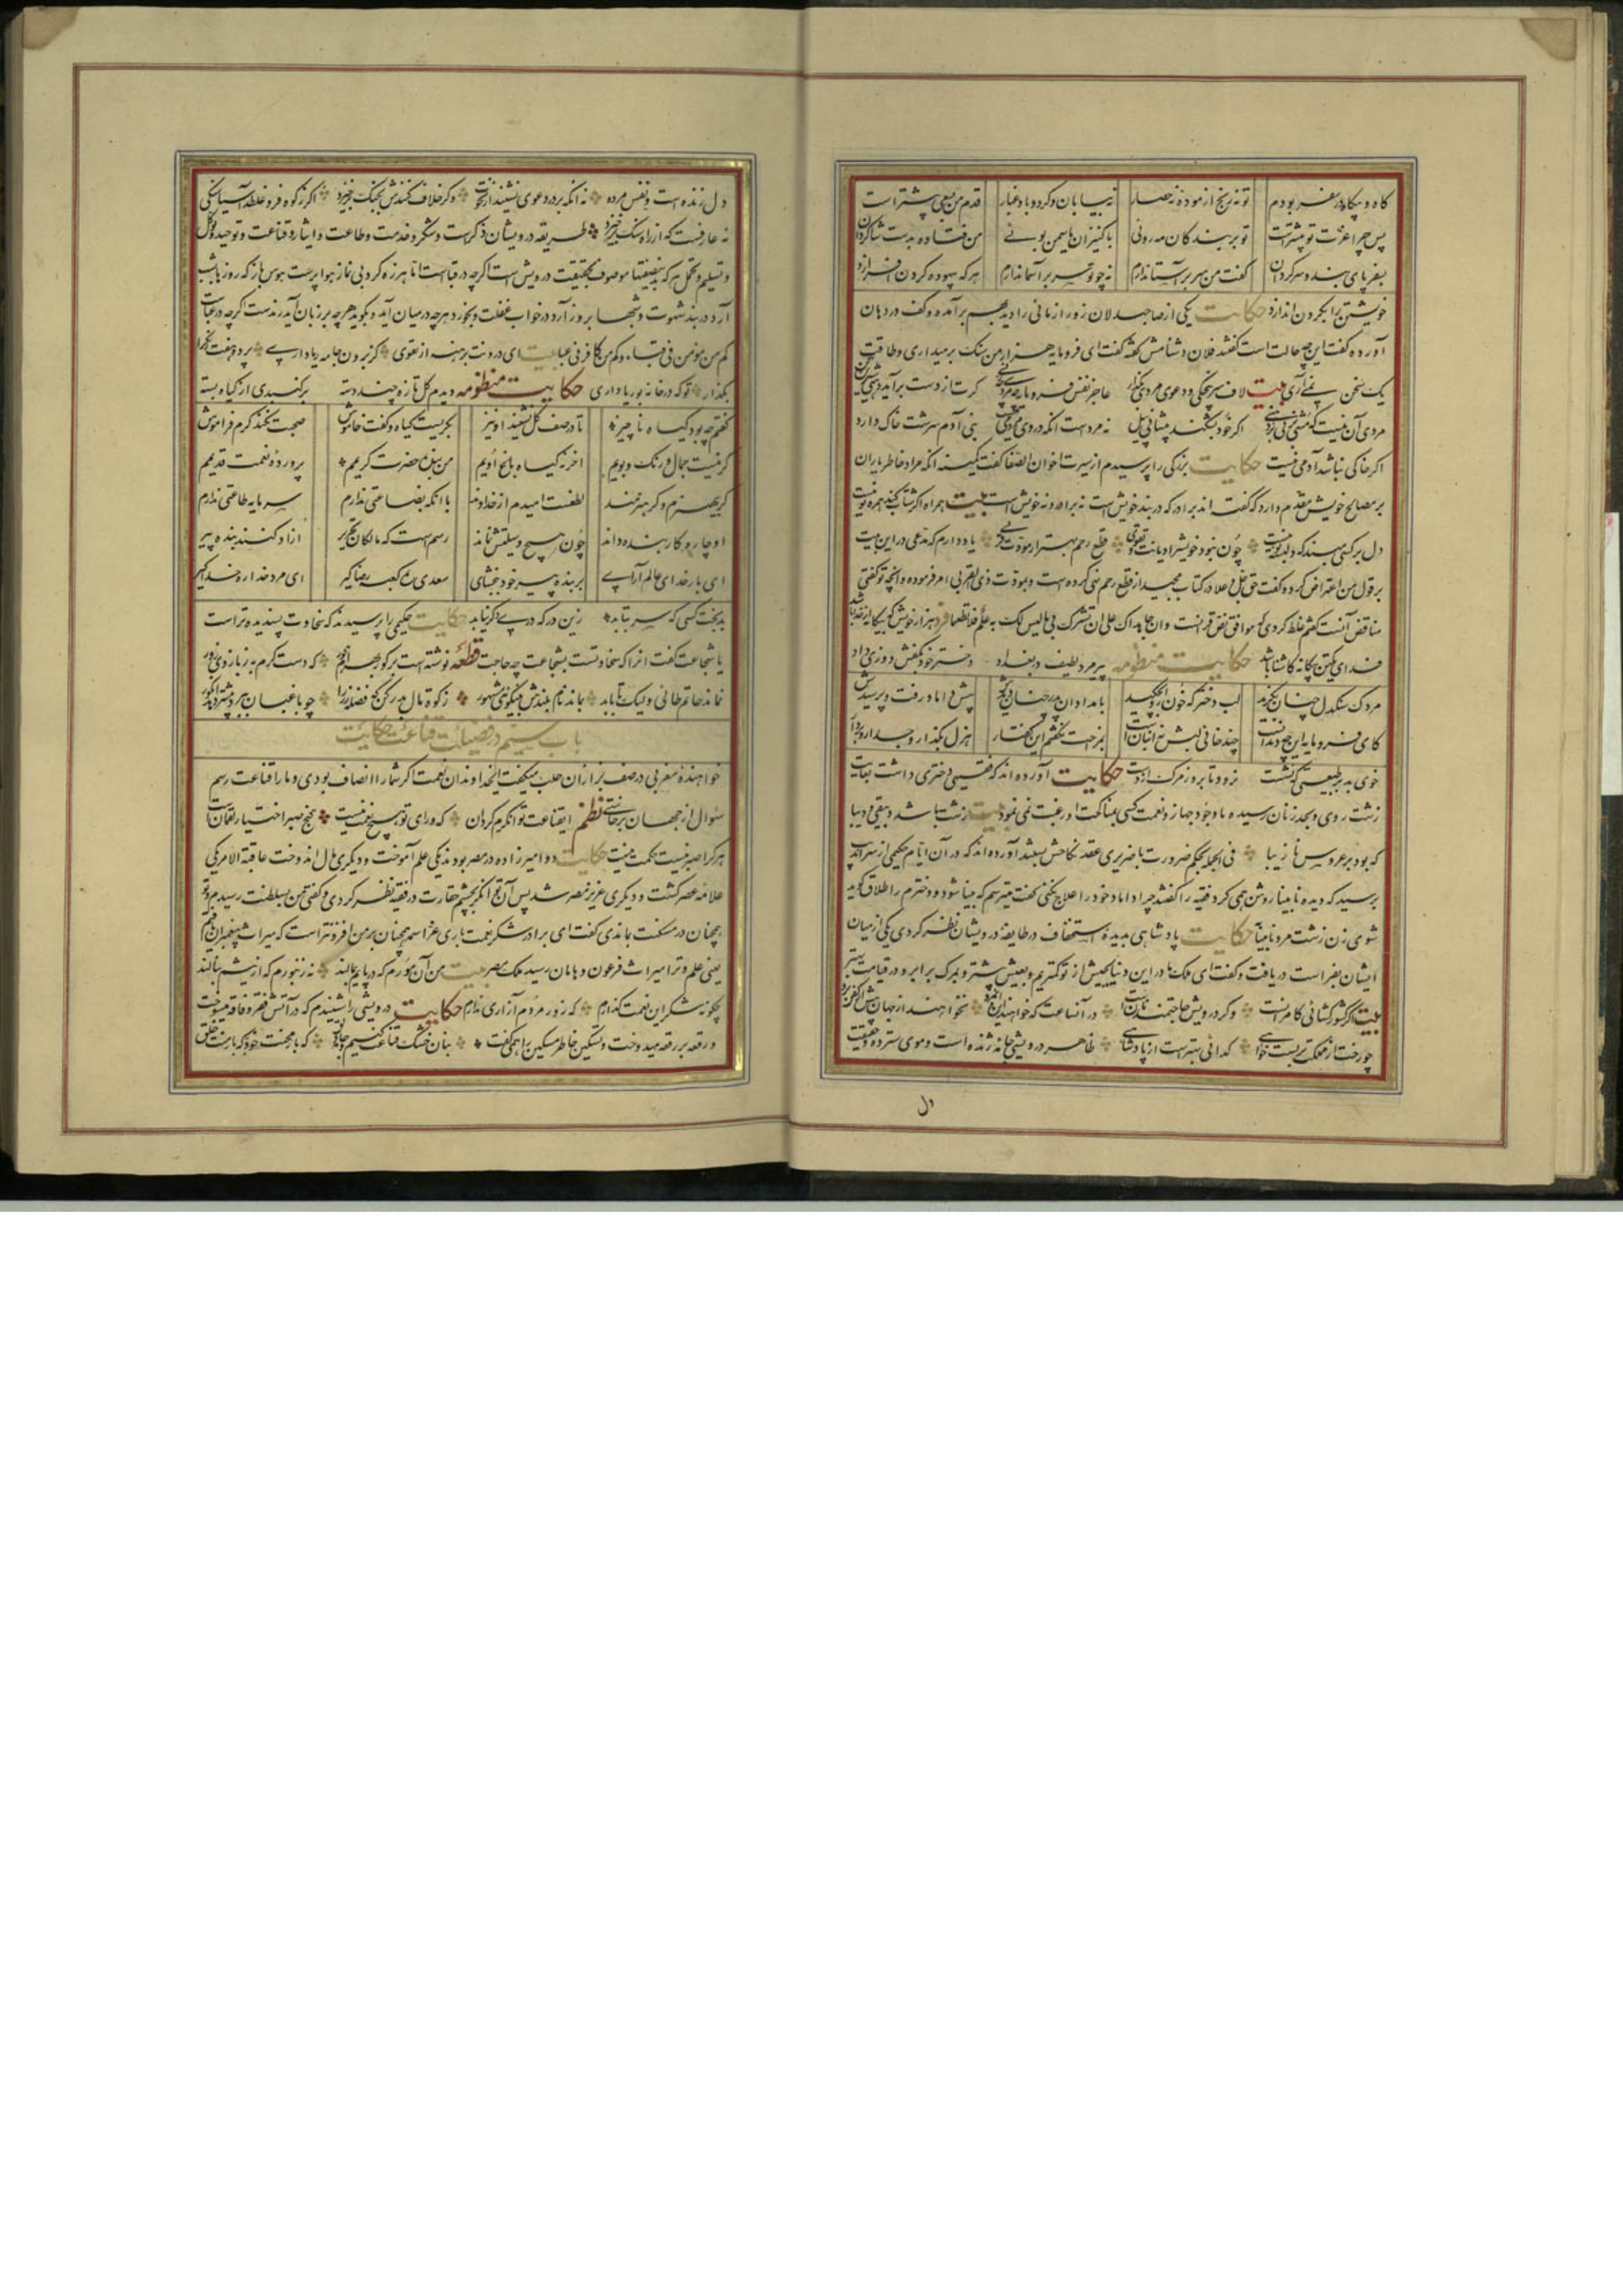 گاه و بیگاه در سفر بودم تو نه رنج آزموده نه حصار نه بیابان و گرد و باد و غبار قدم من بسعی پیشتر است
پس چرا عزت تو بیشترست تو بر بندگان مه رویی با کنیزان یاسمن بویی من فتاده بدست شاگردان
بسفر پای بند و سرگردان گفت من سر بر آستان دارم نه چو تو سر بر آسمان دارم هر که بیهوده گردن افرازد
خویشتن را بگردن اندازد حکایت یکی از صاحبدلان زورآزمائی را دید بهم برآمده و کف در دهان
آورده گفت این چه حالت است گفتند فلان دشنامش گفته گفت ای فرومایه هزار من سنگ برمیداری و طاقت
یک سخن نمی آری بیت لاف سرپنجگی و دعوی مردی بگذار عاجز نفس فرومایه چه مردی چه زنی گرت از دست برآید دهنی شیرین کن
مردی آن نیست که مشتی بزنی بر دهنی اگر خود بشکند پیشانی پیل نه مردست آنکه در وی مردمی نیست بنی آدم سرشت خاک دارد
اگر خاکی نباشد آدمی نیست حکایت بزرگی را پرسیدم از سیرت اخوان الصفا گفت کمینه آنکه مراد خاطر یاران
بر مصالح خویش مقدم دارد که گفته اند برادر که در بند خویش است نه برادر و نه خویش است بیت همراه اگر شتاب کند همره تو نیست
دل در کسی مبند که دلبسته تو نیست چون نبود خویش را دیانت و تقوی قطع رحم بهتر از مودت قربی یاد دارم که مدعی در این بیت
بر قول من اعتراض کرد و گفت حق جل و علا در کتاب مجید از قطع رحم نهی کرده است و بمودت ذی القربی امر فرموده و آنچه تو گفتی
مناقض آنست گفتم غلط کردی که موافق نص قرآنست و ان جاهداک علی ان تشرک بی ما لیس لک به علم فلا تطعهما فرد هزار خویش که بیگانه از خدا باشد
فدای یکتن بیگانه کاشنا باشد حکایت منظومه پیرمرد لطیف در بغداد دخترخود بکفش دوزی داد
مردک سنگدل چنان بگزید لب دختر که خون ازو بچکید بامدادان پدر چنان دیدش پیش داماد رفت و پرسیدش
کای فرومایه این چه دندانست چند خائی لبش نه انبانست بمزاحت نگفتم این گفتار هزل بگذار و جد ازو بردار
خوی بد در طبیعتی که نشست نرود تا بروز مرگ از دست حکایت آورده اند که فقیهی دختری داشت بغایت
زشت روی و بحد زنان رسیده با وجود جهاز و نعمت کسی بمناکحت او رغبت نمی نمود بیت زشت باشد دبیقی و دیبا
که بود بر عروس نازیبا فی الجمله بحکم ضرورت با ضریری عقد نکاحش ببستند آورده اند که در آن ایام حکیمی از سراندیب
برسید که دیده نابینا روشن همی کرد فقیه را گفتند چرا داماد خود را علاج نکنی گفت میترسم که بینا شود و دخترم را طلاق گوید
شوی زن زشت مرد نابینا حکایت پادشاهی بدیده استحقار در طایفه درویشان نظر کردی یکی از میان
ایشان بفراست دریافت و گفت ای ملک ما در این دنیا بجیش از تو کمتریم و بعیش بیشتر و بمرگ برابر و در قیامت بهتر
بیت اگر کشور کشائی کامرانست و گر درویش حاجتمند نانست در آنساعت که خواهند این و آن مرد نخواهند از جهان بیش از کفن برد
چو رخت از مملکت بربست خواهی گدائی بهتر است از پادشاهی ظاهر درویشی جامه ژنده است و موی سترده و حقیقت
دل
دل زنده است و نفس مرده نه آنکه بر در دعوی نشیند از خلق و گر خلاف کنندش بجنگ برخیزد اگر ز کوه فرو غلطد آسیا سنگی
نه عارفست که از راه سنگ برخیزد طریقه درویشان ذکرست و شکر و خدمت و طاعت و ایثار و قناعت و توحید و توکل
و تسلیم و تحمل هر که بدین صفتها موصوف بحقیقت درویش است اگرچه در قباست اما هرزه گرد بی نماز هوا پرست هوس باز که روزها بشب
آرد در بند شهوت و شبها بروز آرد در خواب غفلت و بخورد هرچه در میان آید و بگوید هرچه بر زبان آید رندست گرچه در عباست
کم من مومن فی قباء و کم من کافر فی عباء بیت ای درونت برهنه از تقوی کز برون جامه ریا داری پرده هفت رنگ را
بگذار تو که در خانه بوریا داری حکایت منظومه دیدم گل تازه چند دسته بر گنبدی از گیاه بسته
گفتم چه بود گیاه ناچیز تا در صف گل نشیند او نیز بگریست گیاه و گفت خاموش صحبت نکند کرم فراموش
گر نیست جمال و رنگ و بویم آخر نه گیاه باغ اویم من بنده حضرت کریمم پرورده نعمت قدیمم
گر بی هنرم و گر هنرمند لطفست امیدم از خداوند با آنکه بضاعتی ندارم سرمایه طاعتی ندارم
او چاره کار بنده داند چون هیچ وسیلتش نماند رسم است که مالکان تحریر آزاد کنند بنده پیر
ای بار خدای عالم آرای بر بنده پیر خود ببخشای سعدی ره کعبه رضا گیر ای مرد خدا ره خدا گیر
بدبخت کسی که سر بتابد زین در که دری دگر نیابد حکایت حکیمی را پرسیدند که سخاوت پسندیده تر است
یا شجاعت گفت آنرا که سخاوتست بشجاعت چه حاجت قطعه نوشته است بر گور بهرام گور که دست کرم به ز بازوی زور
نماند حاتم طائی و لیک تا بابد بماند نام بلندش بنیکوئی مشهور زکوة مال بدر کن که فضله رز را چو باغبان ببرد بیشتر دهد انگور
باب سیم در فضیلت قناعت حکایت
خواهنده مغربی در صف بزازان حلب میگفت ای خداوندان نعمت اگر شما را انصاف بودی و ما را قناعت رسم
سوال از جهان برخاستی نظم ای قناعت توانگرم گردان که ورای تو هیچ نعمت نیست گنج صبر اختیار لقمانست
هر که را صبر نیست حکمت نیست حکایت دو امیرزاده در مصر بودند یکی علم آموخت و دیگری مال اندوخت عاقبة الامر یکی
علامه عصر گشت و دیگری عزیز مصر شد پس آن توانگر بچشم حقارت در فقیه نظر کردی و گفتی من بسلطنت رسیدم و تو
همچنان در مسکنت بماندی گفت ای برادر شکر نعمت باری عز اسمه همچنان بر من افزونتر است که میراث پیغمبران یافتم
یعنی علم و ترا میراث فرعون و هامان رسید ملک مصر بیت من آن مورم که در پایم بمالند نه زنبورم که از نیشم بنالند
چگونه شکر این نعمت گذارم که زور مردم آزاری ندارم حکایت درویشی را شنیدم که در آتش فقر و فاقه میسوخت
و رقعه بر رقعه میدوخت و تسکین خاطر مسکین را همی گفت بنان خشک قناعت کنیم و جامه دلق که بار محنت خود به که بار منت خلق